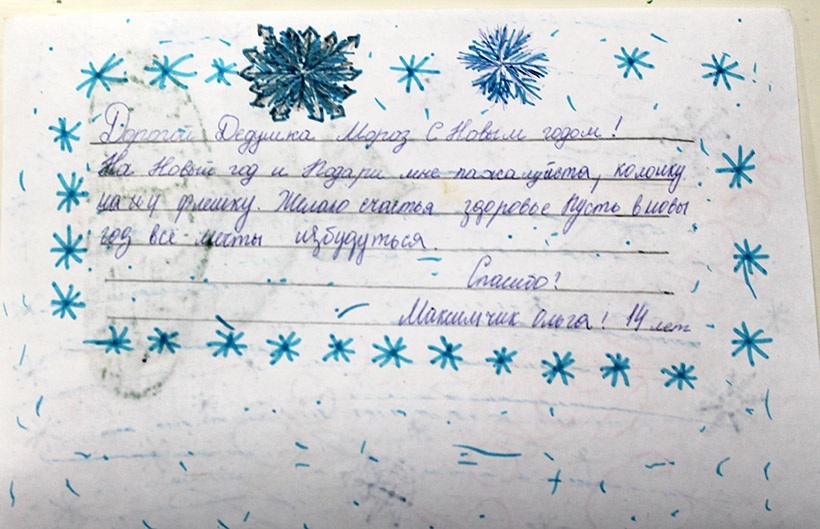 Дорогой Дедушка Мороз С Новым годом!
На Новый год и Подари мне пажалуйста, колонку
флешку. Желаю счастья здоровье Пусть в новы
год все мечты избудуться.
Спасибо!
Максимчик Ольга! 14 лет